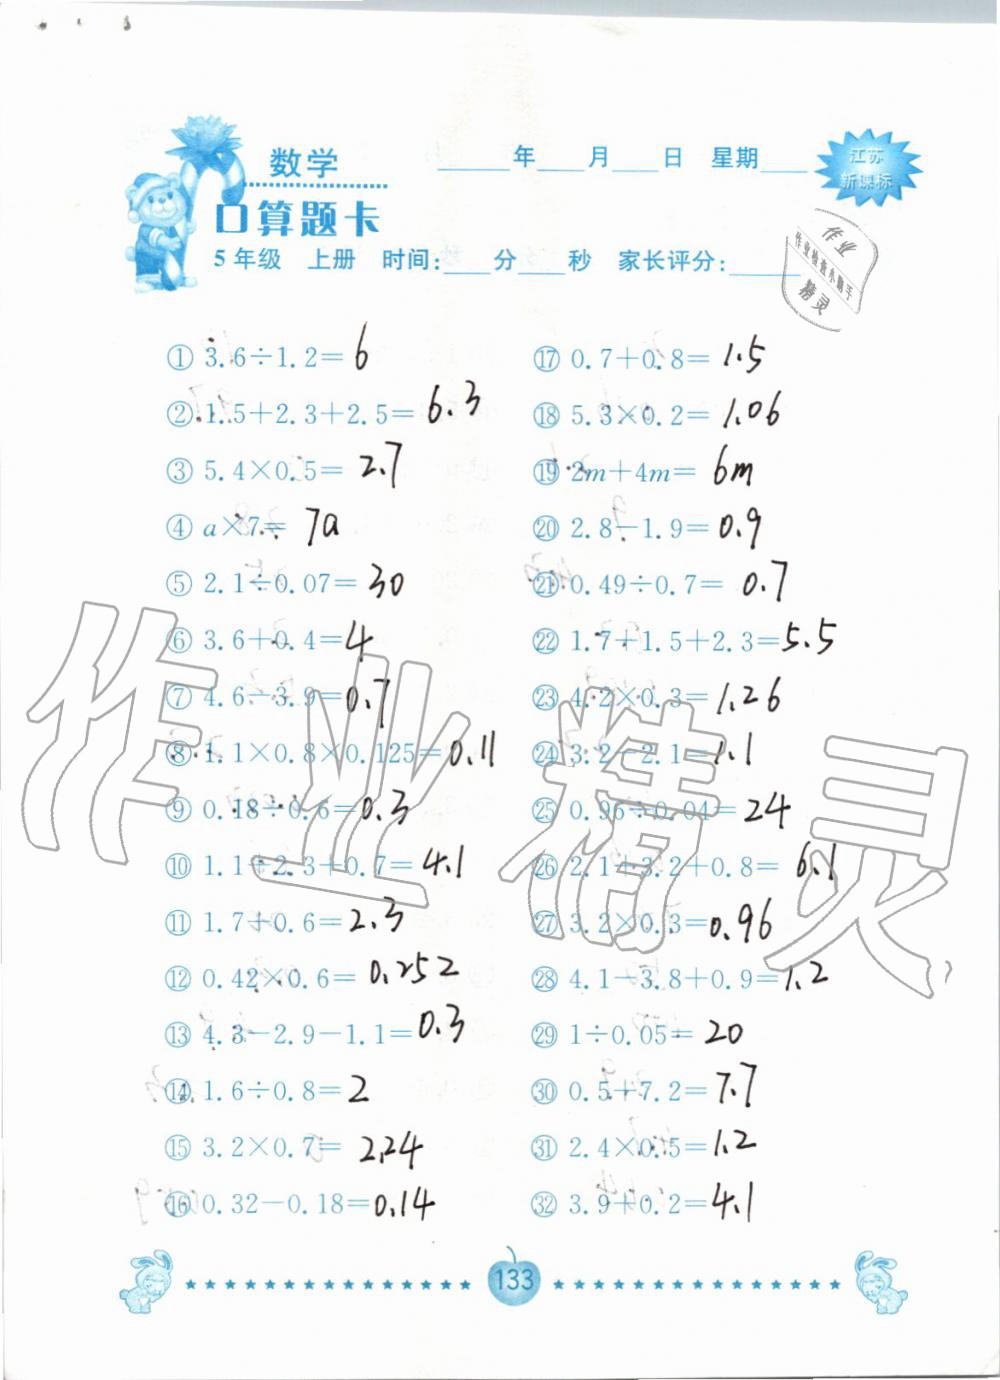 数学
____年____月____日 星期____
江苏
新课标
口算题卡
5年级 上册 时间:____分____秒 家长评分:____
作业
作业检查小助手
精灵
① 3.6÷1.2= 6
② 1.5+2.3+2.5= 6.3
③ 5.4×0.5= 2.7
④ a×7= 7a
⑤ 2.1÷0.07= 30
⑥ 3.6+0.4= 4
⑦ 4.6-3.9= 0.7
⑧ 1.1×0.8×0.125= 0.11
⑨ 0.18÷0.6= 0.3
⑩ 1.1+2.3+0.7= 4.1
⑪ 1.7+0.6= 2.3
⑫ 0.42×0.6= 0.252
⑬ 4.3-2.9-1.1= 0.3
⑭ 1.6÷0.8= 2
⑮ 3.2×0.7= 2.24
⑯ 0.32-0.18= 0.14
⑰ 0.7+0.8= 1.5
⑱ 5.3×0.2= 1.06
⑲ 2m+4m= 6m
⑳ 2.8-1.9= 0.9
㉑ 0.49÷0.7= 0.7
㉒ 1.7+1.5+2.3= 5.5
㉓ 4.2×0.3= 1.26
㉔ 3.2-2.1= 1.1
㉕ 0.96÷0.04= 24
㉖ 2.1+3.2+0.8= 6.1
㉗ 3.2×0.3= 0.96
㉘ 4.1-3.8+0.9= 1.2
㉙ 1÷0.05= 20
㉚ 0.5+7.2= 7.7
㉛ 2.4×0.5= 1.2
㉜ 3.9+0.2= 4.1
作业精灵
133